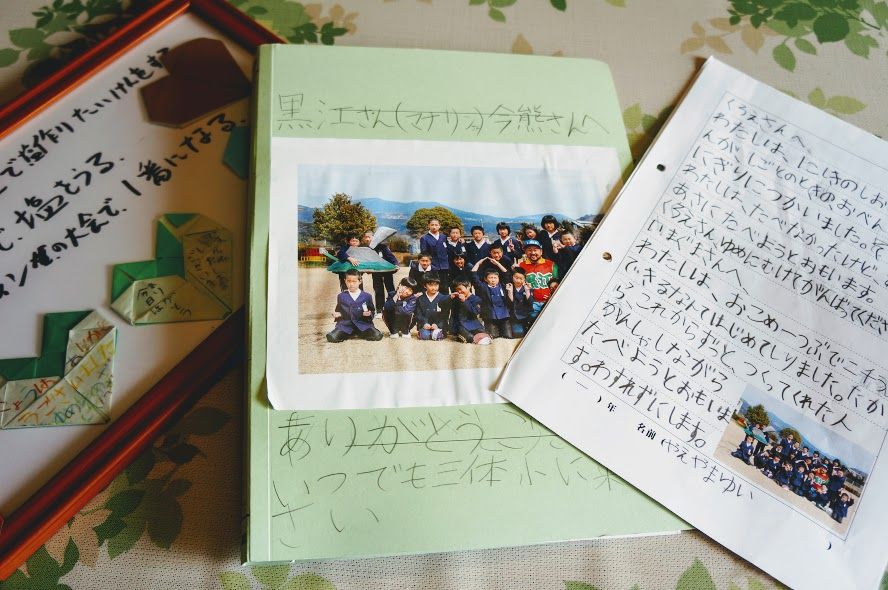 で塩作りたいけんをする
で、塩をうる。
ン塩の大会で、1番になる。
黒江さん(マナリオ)今熊さんへ
ありがとう
いつでも三体小に来
さい
くろえさんへ、
わたしは、
んがしごとのときのおべん
にぎりにつかいました。そ
わたしはたべたかったけど
あさにたべようとおもいます。
くろえさんゆめにむけてがんばってくださ
いまくまさんへ
わたしは、おこめ一つぶで二千
できるなんてはじめてしりました。だか
ら、これからずっと、つくってくれた人
かんしゃしながら
たべようとおもいま
す。わすれずにします。
(一)年 名前(やえやまゆい)